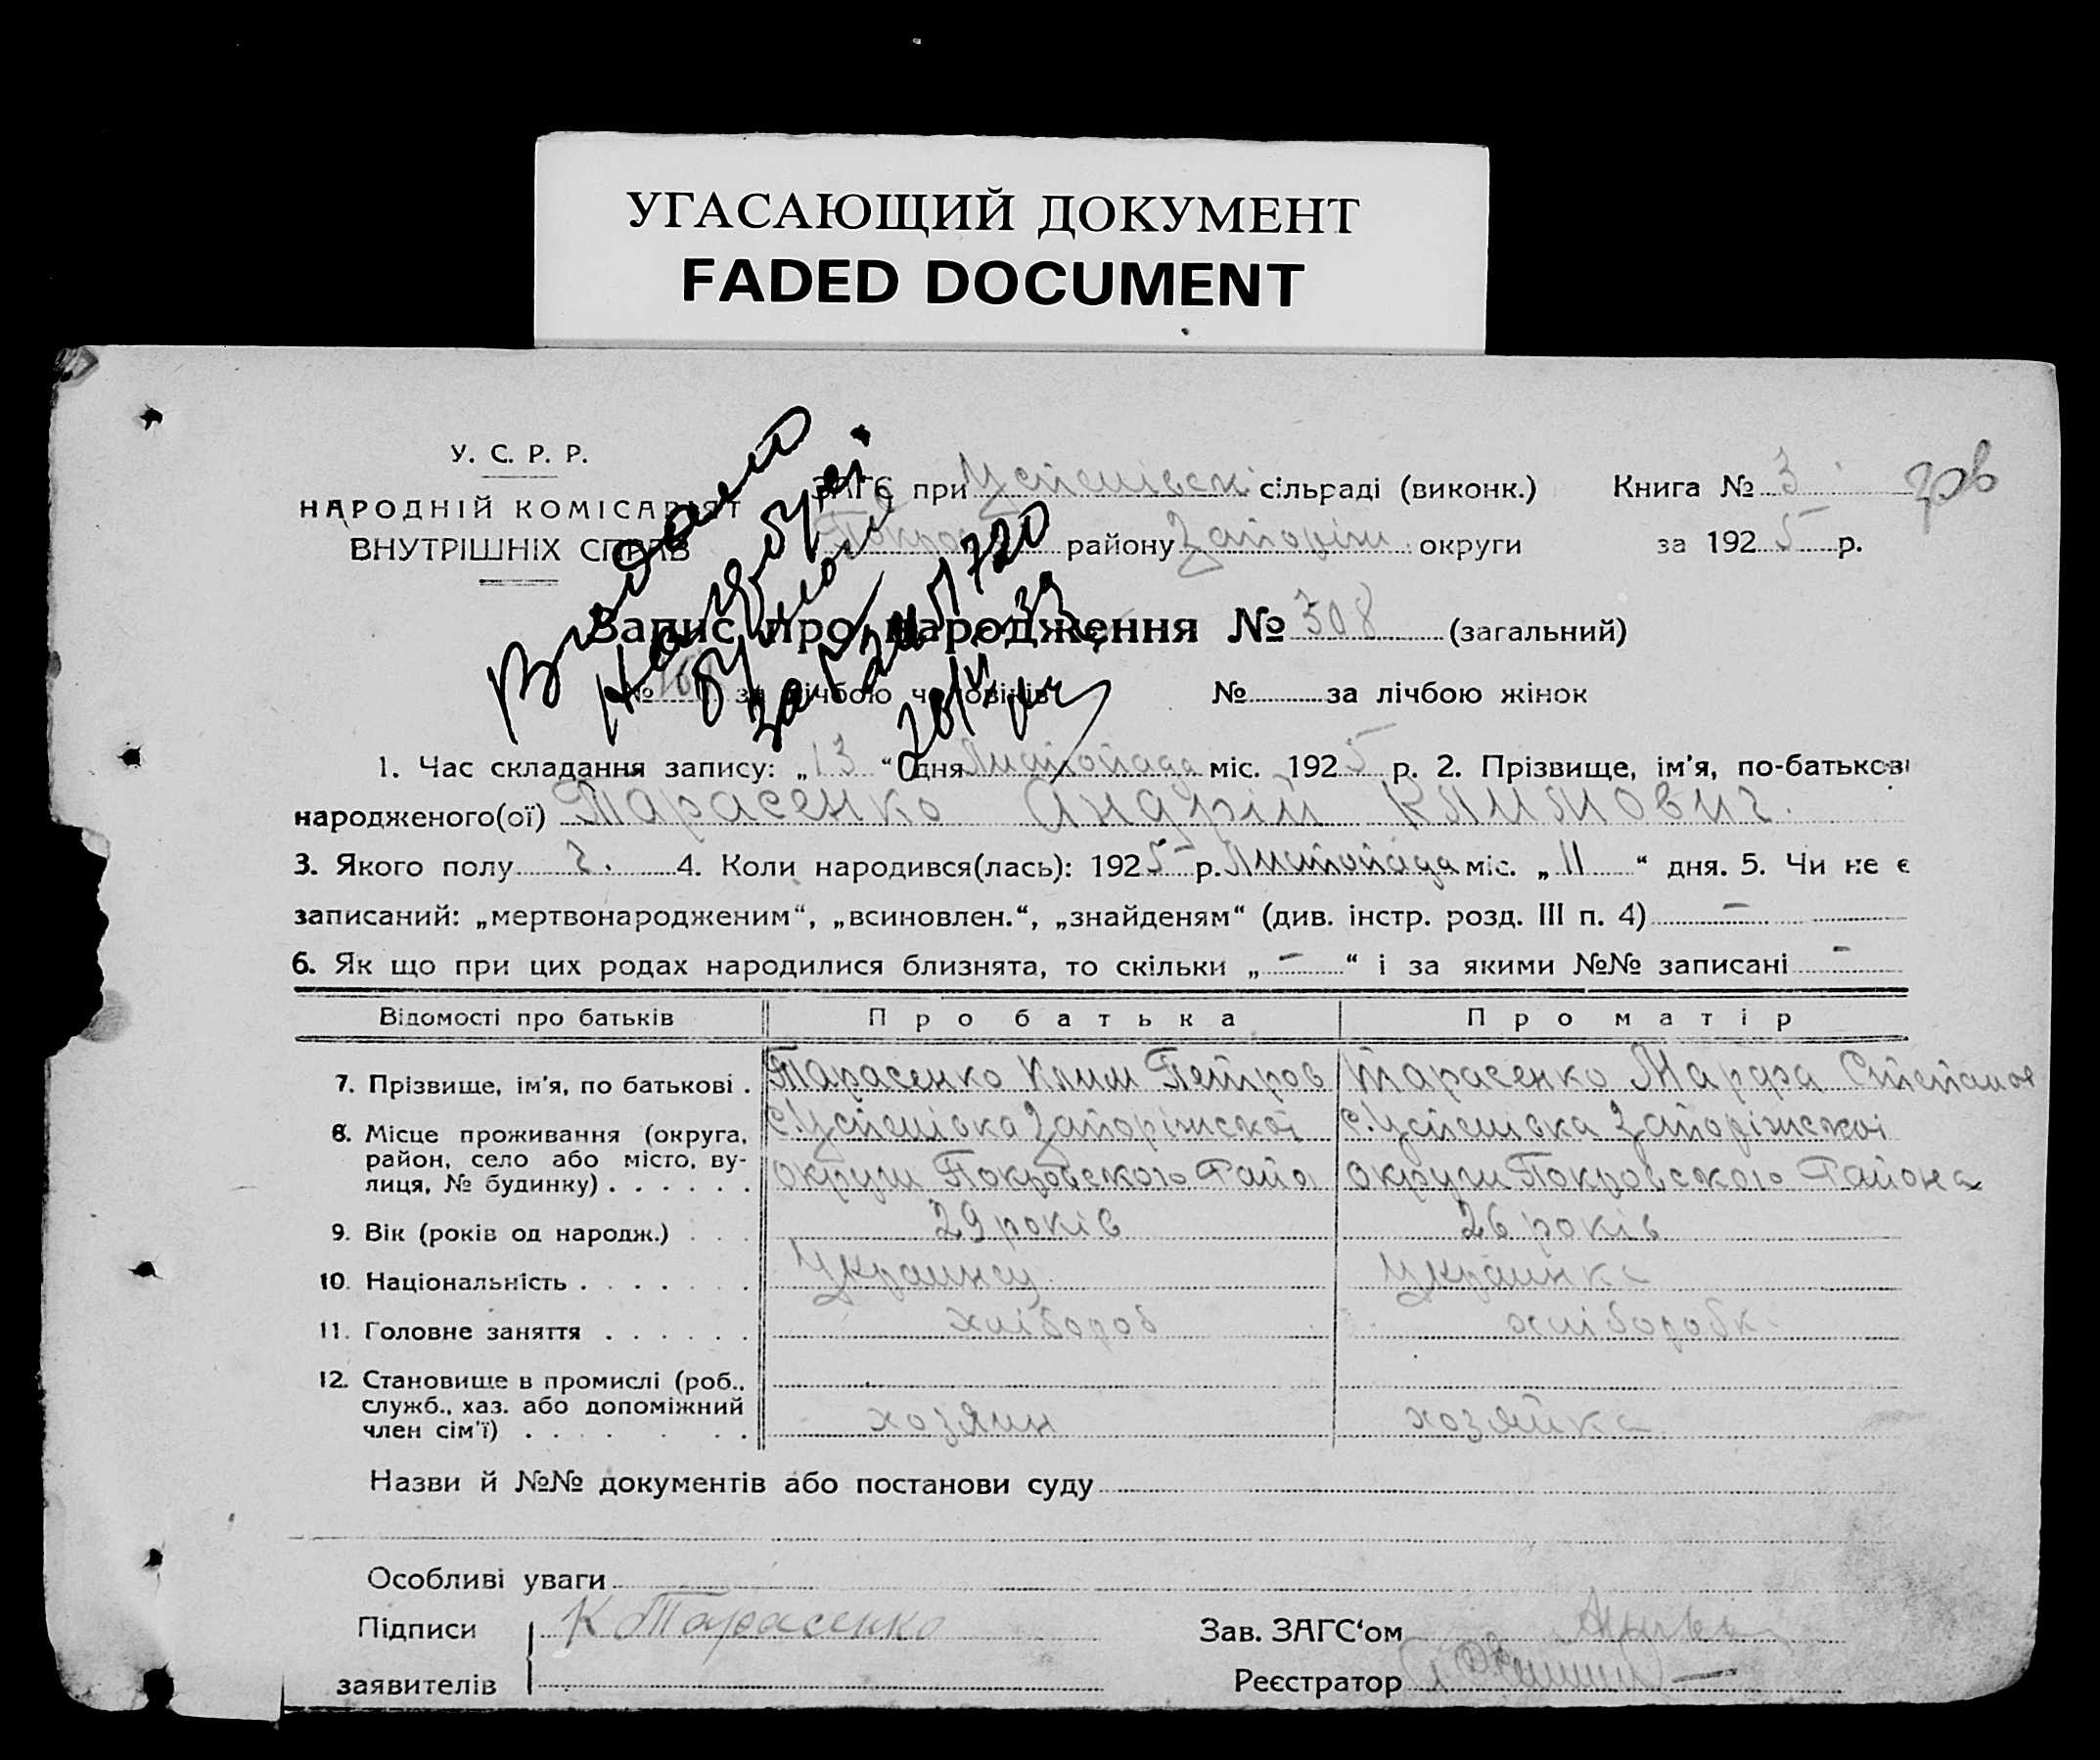 УГАСАЮЩИЙ ДОКУМЕНТ
FADED DOCUMENT
У. С. Р. Р.
НАРОДНІЙ КОМІСАРІЯТ
ВНУТРІШНІХ СПРАВ
ЗАГС при Успенівскі сільраді (виконк.) Книга № 3
району Запоріж округи за 1925 р.
Запис про народження № 308 (загальний)
№ за лічбою чоловіків № за лічбою жінок
1. Час складання запису: „13“ дня Листопада міс. 1925 р. 2. Прізвище, ім'я, по-батькові
народженого(ої) Тарасенко Андрій Климович.
3. Якого полу ч. 4. Коли народився(лась): 1925 р. Листопада міс. „11“ дня. 5. Чи не є
записаний: „мертвонародженим“, „всиновлен.“, „знайденям“ (див. інстр. розд. III п. 4) –
6. Як що при цих родах народилися близнята, то скільки „–“ і за якими №№ записані –
Відомості про батьків Про батька Про матір
7. Прізвище, ім'я, по батькові . Тарасенко Клим Петров Тарасенко Марфа Степанов
8. Місце проживання (округа, с. Успенівка Запоріжскої с. Успенівка Запоріжскої
район, село або місто, ву-
лиця, № будинку) . . . . . . округи Покровского Райо округи Покровского Района
9. Вік (років од народж.) . . . 29 років 26 років
10. Національність . . . . . . . Украинец Украинка
11. Головне заняття . . . . . . хлібороб хлiборобк
12. Становище в промислі (роб.,
служб., хаз. або допоміжний
член сім'ї) . . . . . . . хозяин хозяйка
Назви й №№ документів або постанови суду
Особливі уваги
Підписи К Тарасенко Зав. ЗАГС'ом
заявителів Реєстратор